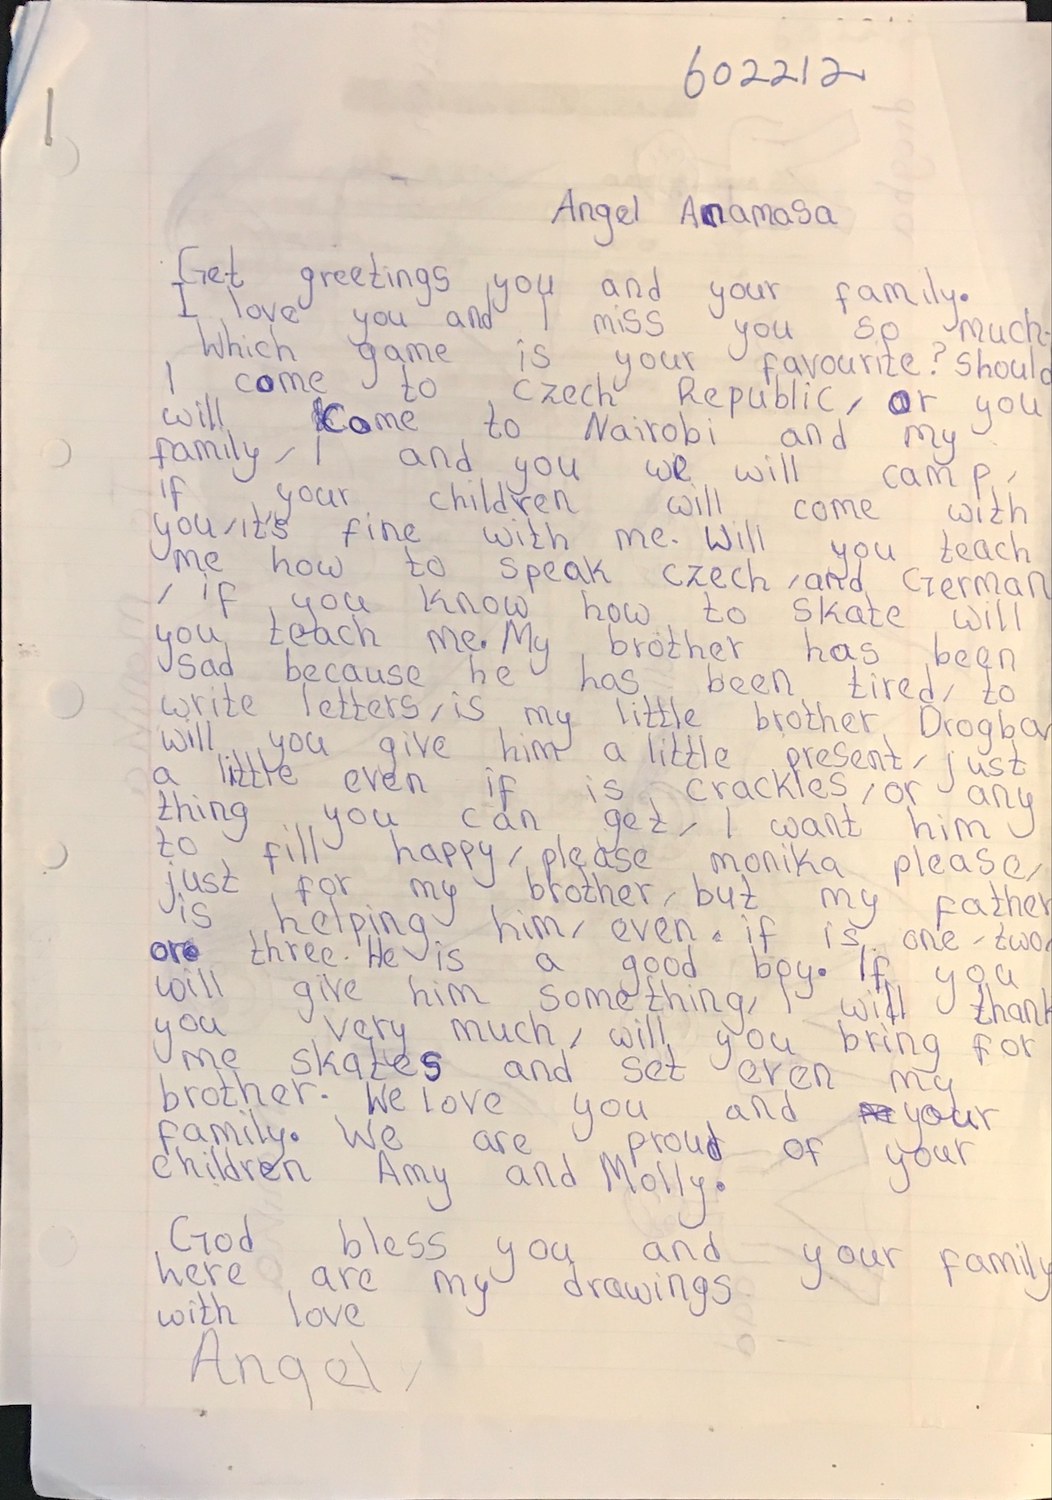 602212
Angel Anamasa
Get greetings you and your family.
I love you and I miss you so much.
Which game is your favourite? Should
I come to Czech Republic, or you
will come to Nairobi and my
family, I and you we will camp,
if your children will come with
you, it's fine with me. Will you teach
me how to speak czech, and German
, if you know how to skate will
you teach me. My brother has been
sad because he has been tired, to
write letters, is my little brother Drogba,
will you give him a little present, just
a little even if is crackles, or any
thing you can get, I want him
to fill happy, please monika please,
just for my brother, but my father
is helping him, even if is one, two,
ore three. He is a good boy. If you
will give him something, I will thank
you very much, will you bring for
me skates and set even my
brother. We love you and your
family. We are proud of your
children Amy and Molly.
God bless you and your family
here are my drawings
with love
Angel,